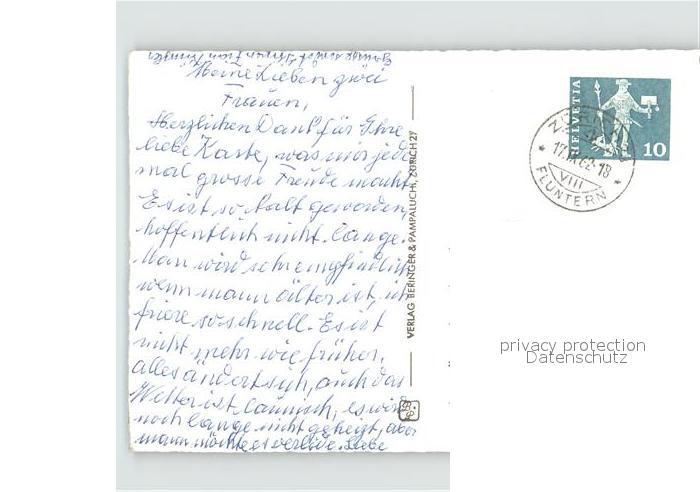 Meine Lieben zwei
Frauen,
Herzlichen Dank für Ihre
liebe Karte, was mir jede
mal grosse Freude macht
Es ist so kalt geworden,
hoffentlich nicht lange.
Man wird sehr empfindlich
wenn mann älter ist, ich
friere so schnell. Es ist
nicht mehr wie früher,
alles ändert sich, auch das
Wetter ist launisch, es wird
noch lange nicht geheizt, aber
mann möchte es Liebe
VERLAG BERINGER & PAMPALUCHI, ZÜRICH 27
HELVETIA
10
ZÜRICH
17.IX.62-18
VIII
FLUNTERN
privacy protection
Datenschutz